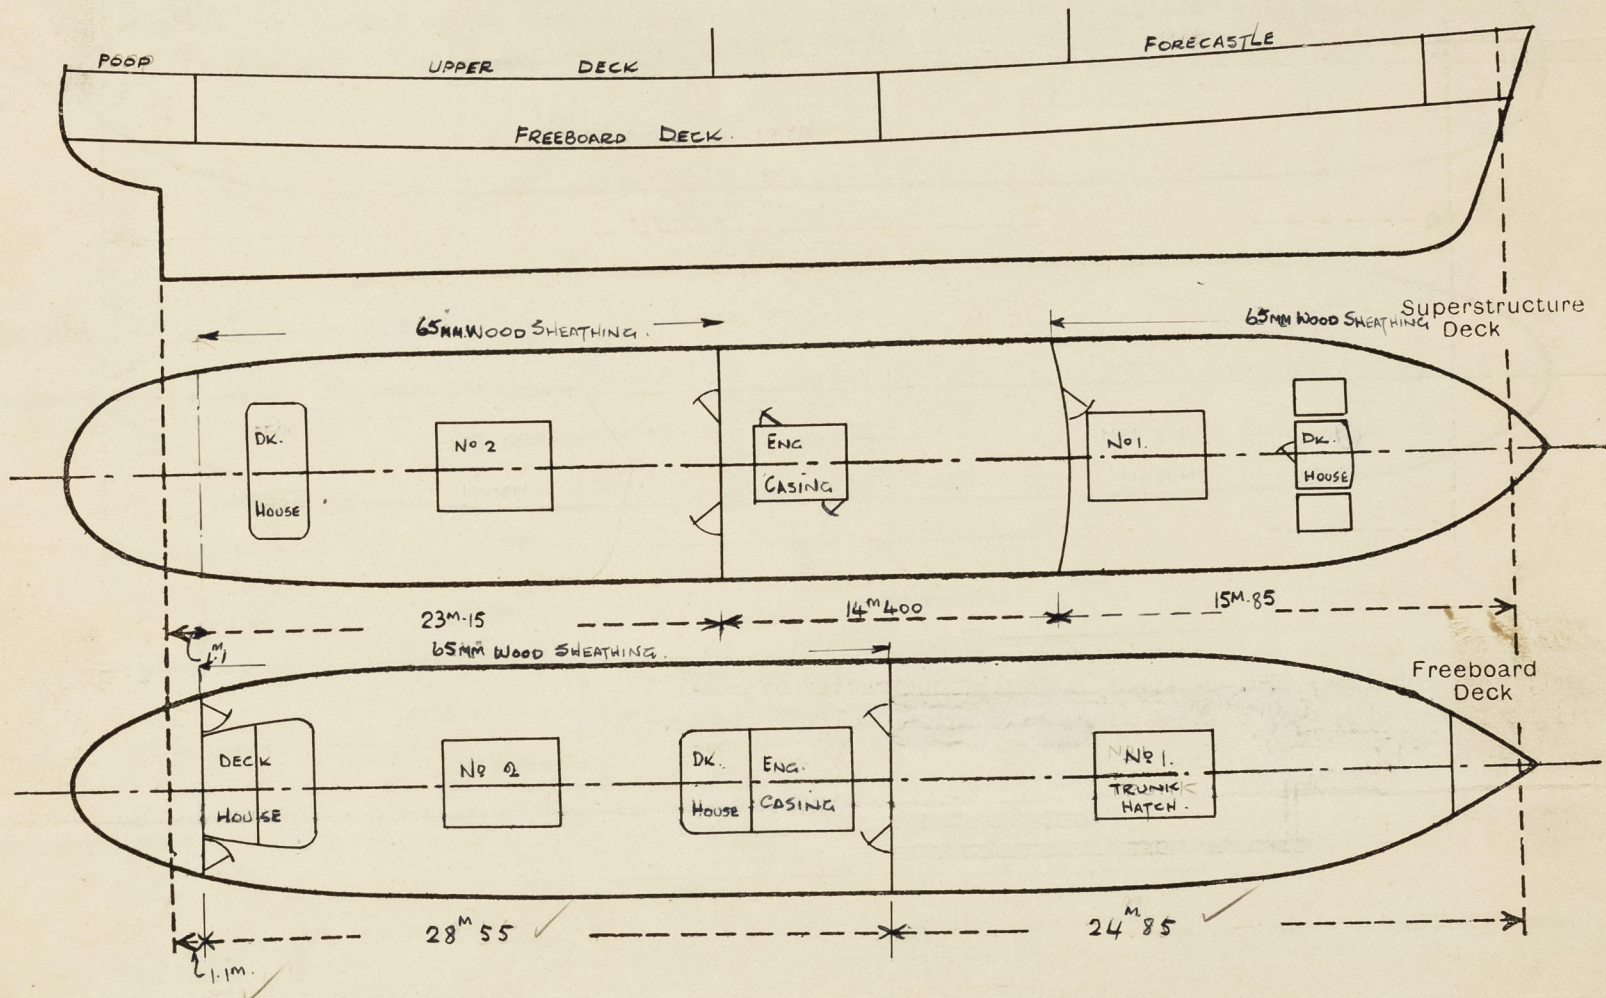 POOP
UPPER DECK
FORECASTLE
FREEBOARD DECK.
65MM WOOD SHEATHING.
65MM WOOD SHEATHING
Superstructure
Deck
DK.
HOUSE
No 2
ENG
CASING
No 1.
DK.
HOUSE
23M.15
14M400
15M.85
1M1
65MM WOOD SHEATHING.
Freeboard
Deck
DECK
HOUSE
No 2
DK.
HOUSE
ENG.
CASING
No 1.
TRUNK
HATCH.
28M55
24M.85
1.1M.